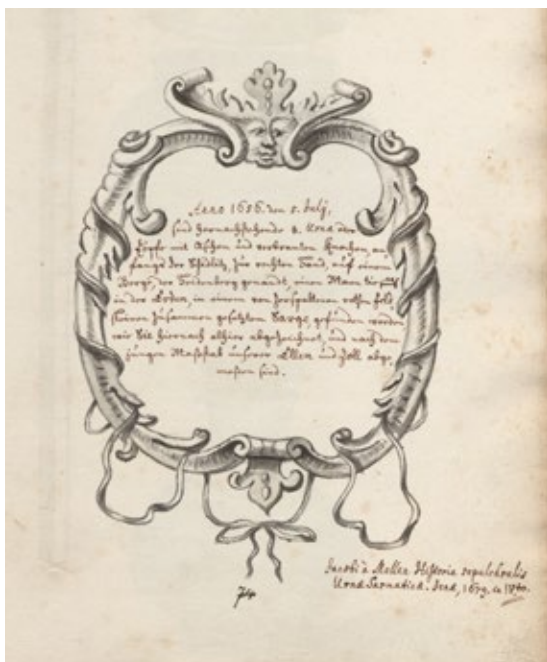 Anno 1656. den 5. July,
sind hernachfolgende 8. Urnæ oder
Töpfe mit Aschen und verbranten Knochen, an
fangs der Schidlitz, zur rechten Hand, auf einem
Berge, der genandt, einen Mann tief
in der Erden, in einem von rothen feld
Steinen zusammen gesetzten Sarge, gefunden worden
wie Sie hiernach alhier abgezeichnet, und nach dem
jüngen Maßstab unserer Ellen und Zoll abge
meßen sind.
Jacobi à Mellen Historia sepulchralis
Urnæ Sarmaticæ. Jenæ, 1679. in 4to.
74